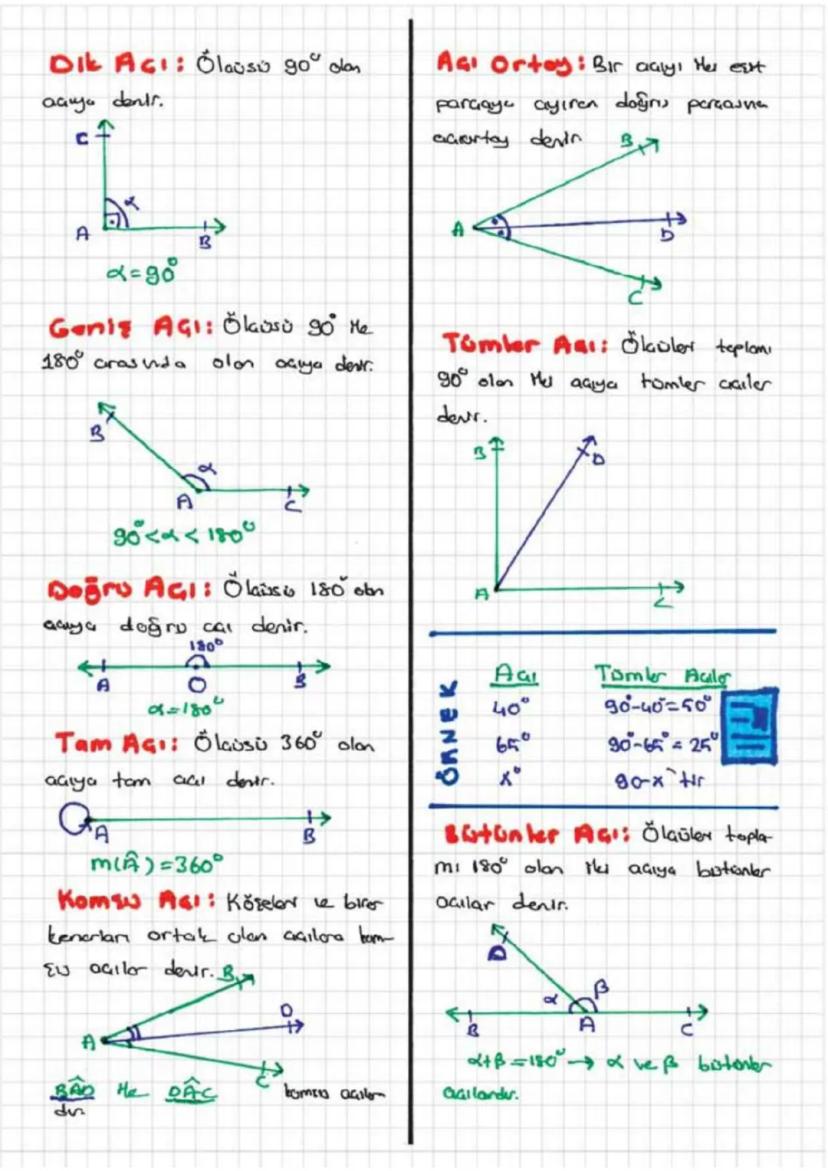 Dik Açı: Ölçüsü 90° olan
açıya denir.
C
α
A
B
α=90°
Geniş Açı: Ölçüsü 90° ile
180° arasında olan açıya denir.
B
α
A
C
90°<α<180°
Doğru Açı: Ölçüsü 180° olan
açıya doğru açı denir.
180°
A
O
B
α=180°
Tam Açı: Ölçüsü 360° olan
açıya tam açı denir.
A
B
m(Â)=360°
Komşu Açı: Köşeleri ve birer
kenarları ortak olan açılara kom-
şu açılar denir.
B
D
A
C
BÂD ile DÂC komşu açılar
dır
Açı Ortay: Bir açıyı iki eşit
parçaya ayıran doğru parçasına
açıortay denir
B
A
D
C
Tümler Açı: Ölçüleri toplamı
90° olan iki açıya tümler açılar
denir.
B
D
A
C
ÖRNEK
Açı Tümler Açılar
40° 90°-40°=50°
65° 90°-65°=25°
x° 90-x'tir
Bütünler Açı: Ölçüleri topla-
mı 180° olan iki açıya bütünler
açılar denir.
D
α
β
B
A
C
α+β=180°→ α ve β bütünler
açılardır.